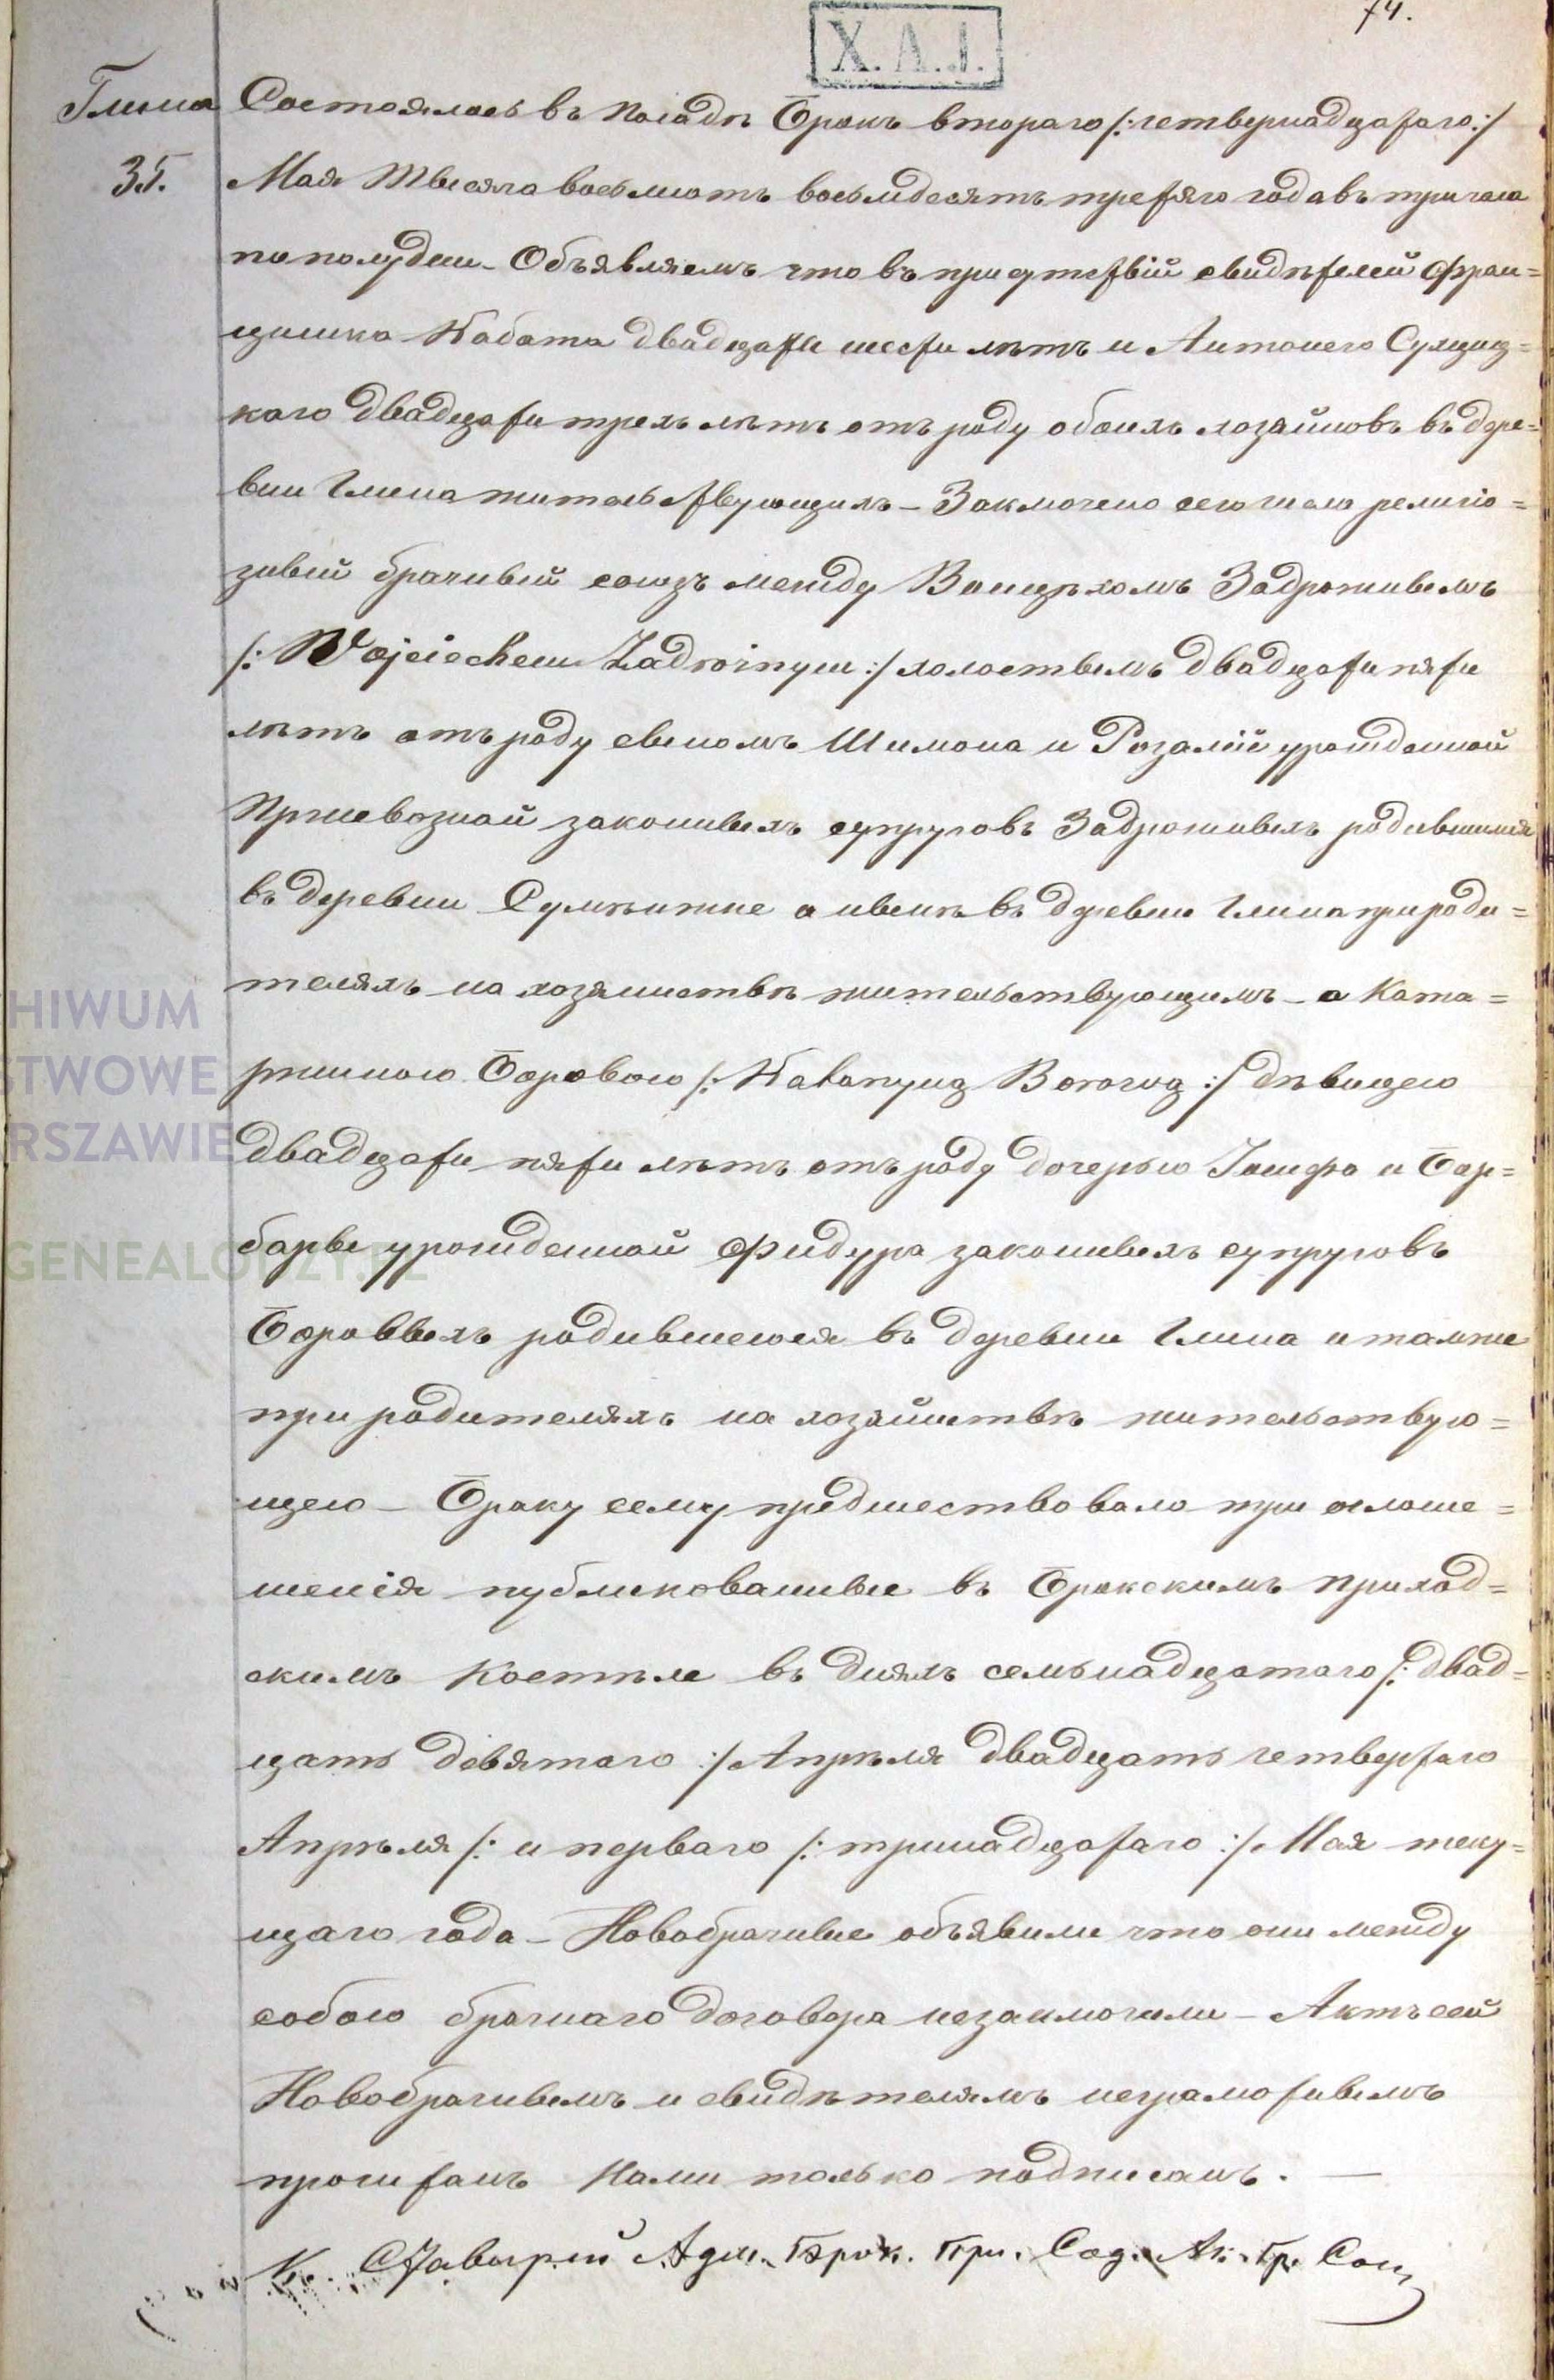 74.
X.A.J.
Глина
35.
Состоялось въ Посадѣ Брокъ втораго /:четвернадцатаго:/
Мая тысяча восьмсотъ восьмдесятъ третяго года въ три часа
пополудни – Объявляемъ что въ присутствій свидѣтелей Фран=
цишка Кабата двадцати шести лѣтъ и Антонего
каго двадцати трехъ лѣтъ отъ роду обоихъ хозаиновъ въ дере=
вни Глина жительствующихъ – Заключено сего числа религіо=
зный брачный союзъ между Воицѣхомъ Задрожнымъ
/: Wojciechem Zadrożnym :/ холостымъ двадцати пяти
лѣтъ отъ роду сыномъ Шимона и Розаліи урожденной
Пржевозной законныхъ супруговъ Задрожныхъ родившимся
въ деревни а нынѣ въ деревни Глина при роди=
теляхъ на хозяиствѣ жительствующимъ – а Ката=
ржиною Боровою /: Katarzyną Borową :/ дѣвицею
двадцати пяти лѣтъ отъ роду дочерью Іосифа и Бар=
бары урожденной Фидура законныхъ супруговъ
Боровыхъ родившеюся въ деревни Глина и тамже
при родителяхъ на хозяйствѣ жительствую=
щею – Браку сему предшествовало три оглаше=
шенія публикованные въ Брокскимъ приход=
скимъ Костѣле въ дняхъ семьнадцатаго /: двад=
цать девятаго :/ Апрѣля двадцать четвертаго
Апрѣля /: и перваго /: тринадцатаго :/ Мая теку=
щаго года – Новобрачные объявили что они между
собою брачнаго договора незаключили – Актъ сей
Новобрачнымъ и свидѣтелямъ неграмотнымъ
прочитанъ Нами только подписанъ. –
Адм. Брок. При. Сод. Ак. Гр. Сост
HIWUM
STWOWE
RSZAWIE
GENEALODZY.PL